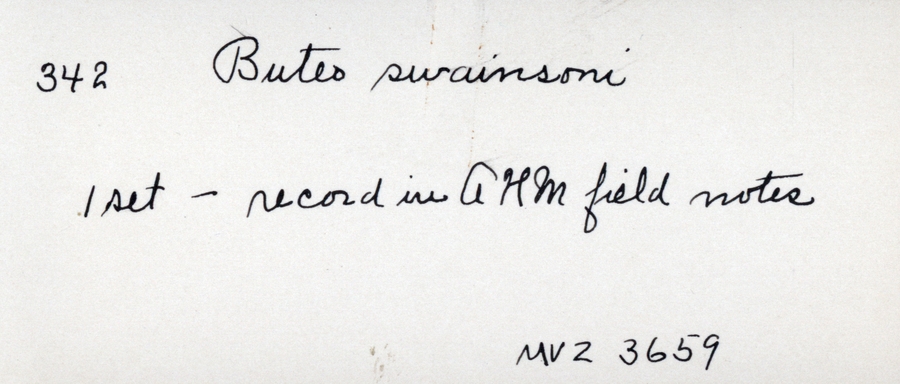 342 Buteo swainsoni
1 set – record in AHM field notes
MVZ 3659